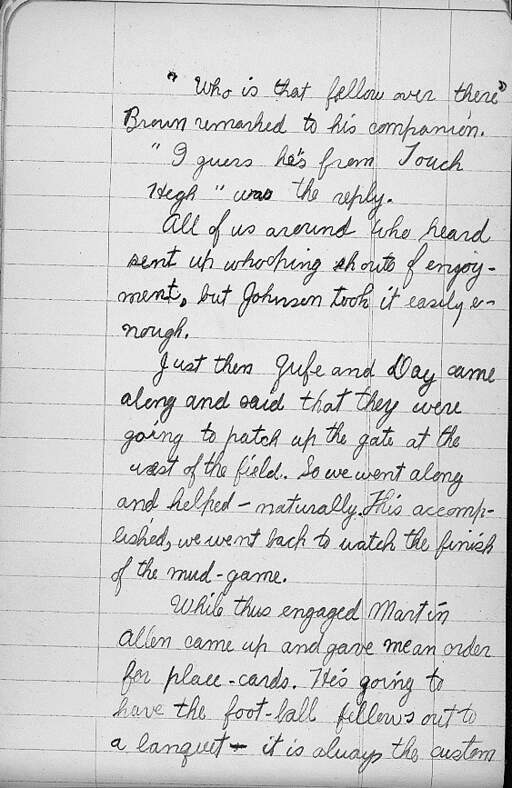 " Who is that fellow over there"
Brown remarked to his companion.
" I guess he's from Touch
High " was the reply.
All of us around who heard
sent up whooping shouts of enjoy-
ment, but Johnsen took it easily e-
nough.
Just then and Day came
along and said that they were
going to patch up the gate at the
west of the field. So we went along
and helped - naturally. This accomp-
lished, we went back to watch the finish
of the mud-game.
While thus engaged Martin
Allen came up and gave me an order
for place-cards. He's going to
have the foot-ball fellows out to
a banquet - it is always the custom